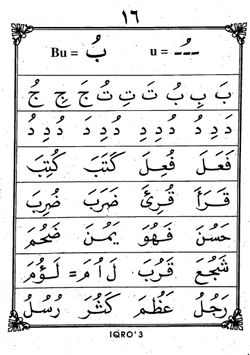 ١٦
Bu = بُ u = ـُـ
بَ بِ بُ تَ تِ تُ جَ جِ جُ
دَ دِ دُ دَ دِ دُ دُ دِ دُ
فَعَلَ فُعِلَ كَتَبَ كُتِبَ
قَرَأَ قُرِئَ ضَرَبَ ضُرِبَ
حَسُنَ فَهُوَ يَمُنَ ضَخُمَ
شَجُعَ قَرُبَ لَ اُ مَ = لَؤُمَ
رَجُلُ عَظُمَ كَثُرَ رُسُلُ
IQRO' 3